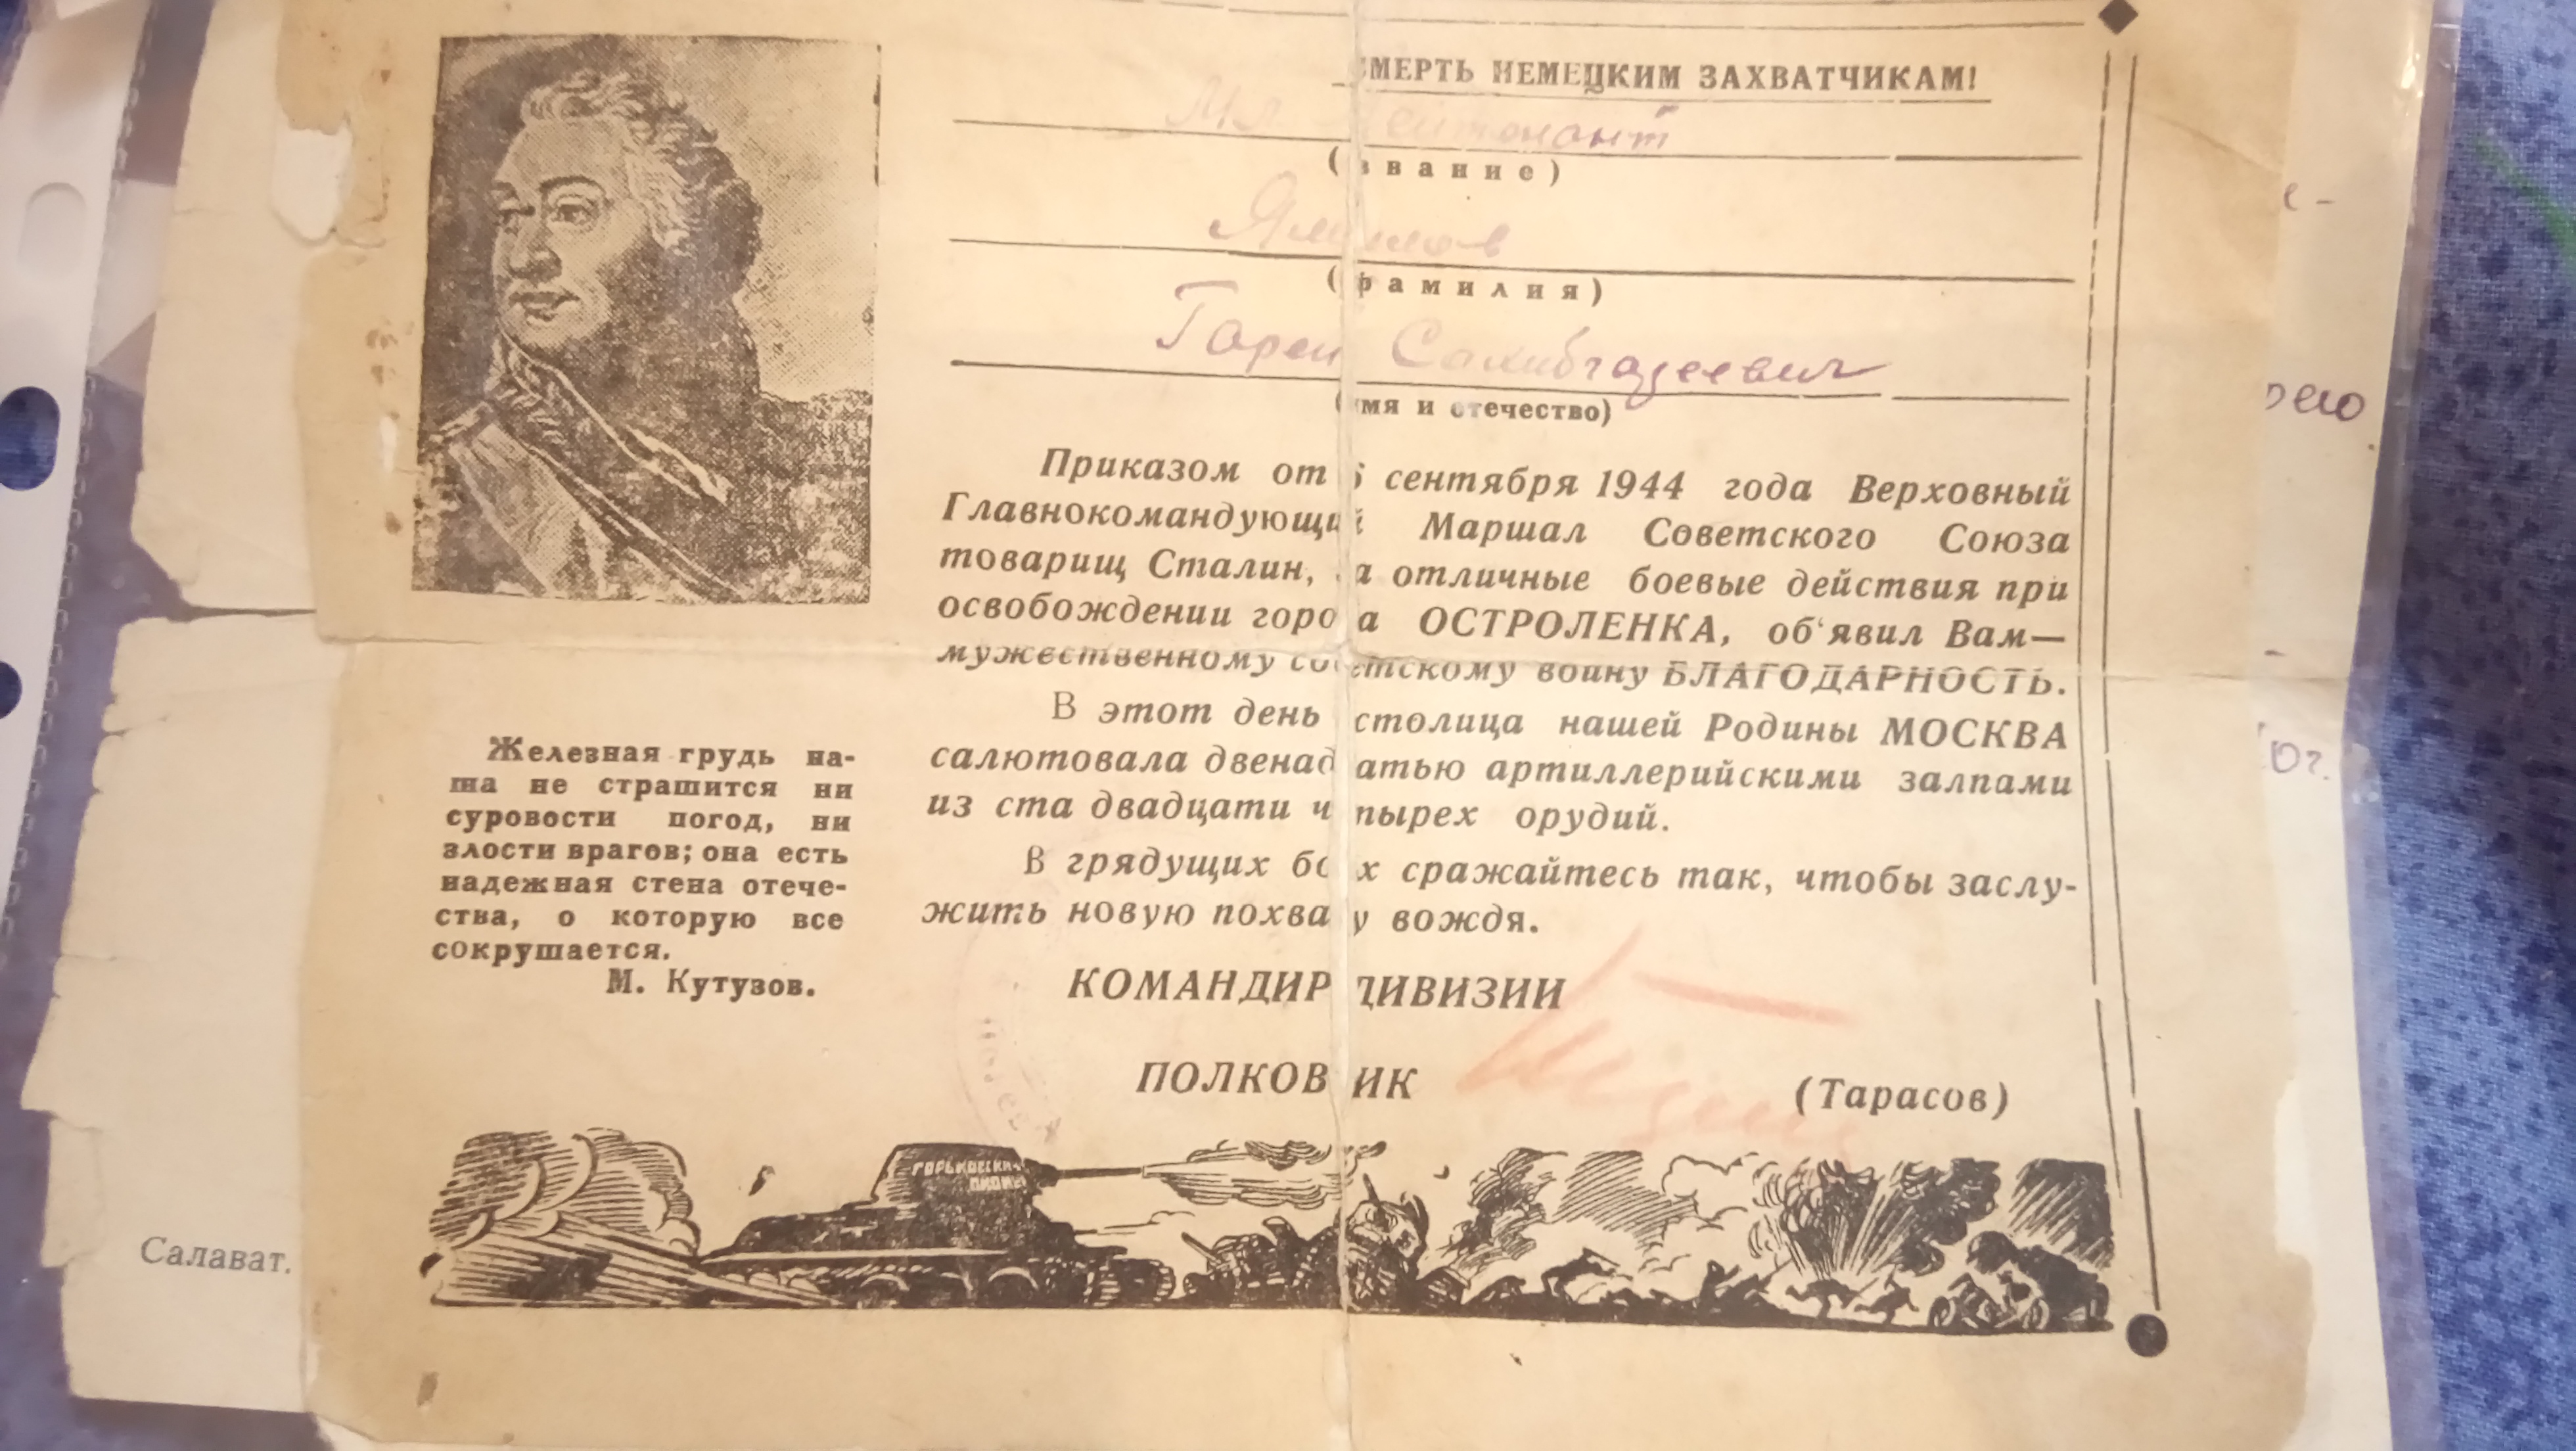 СМЕРТЬ НЕМЕЦКИМ ЗАХВАТЧИКАМ!
Мл. Лейтенант
(звание)
(фамилия)
Гарей Сахибгареевич
(имя и отчество)
Приказом от 6 сентября 1944 года Верховный
Главнокомандующий Маршал Советского Союза
товарищ Сталин, за отличные боевые действия при
освобождении города ОСТРОЛЕНКА, об'явил Вам—
мужественному советскому воину БЛАГОДАРНОСТЬ.
В этот день столица нашей Родины МОСКВА
салютовала двенадцатью артиллерийскими залпами
из ста двадцати четырех орудий.
В грядущих боях сражайтесь так, чтобы заслу-
жить новую похвалу вождя.
КОМАНДИР ДИВИЗИИ
ПОЛКОВНИК (Тарасов)
Железная грудь на-
ша не страшится ни
суровости погод, ни
злости врагов; она есть
надежная стена отече-
ства, о которую все
сокрушается.
М. Кутузов.
Салават.